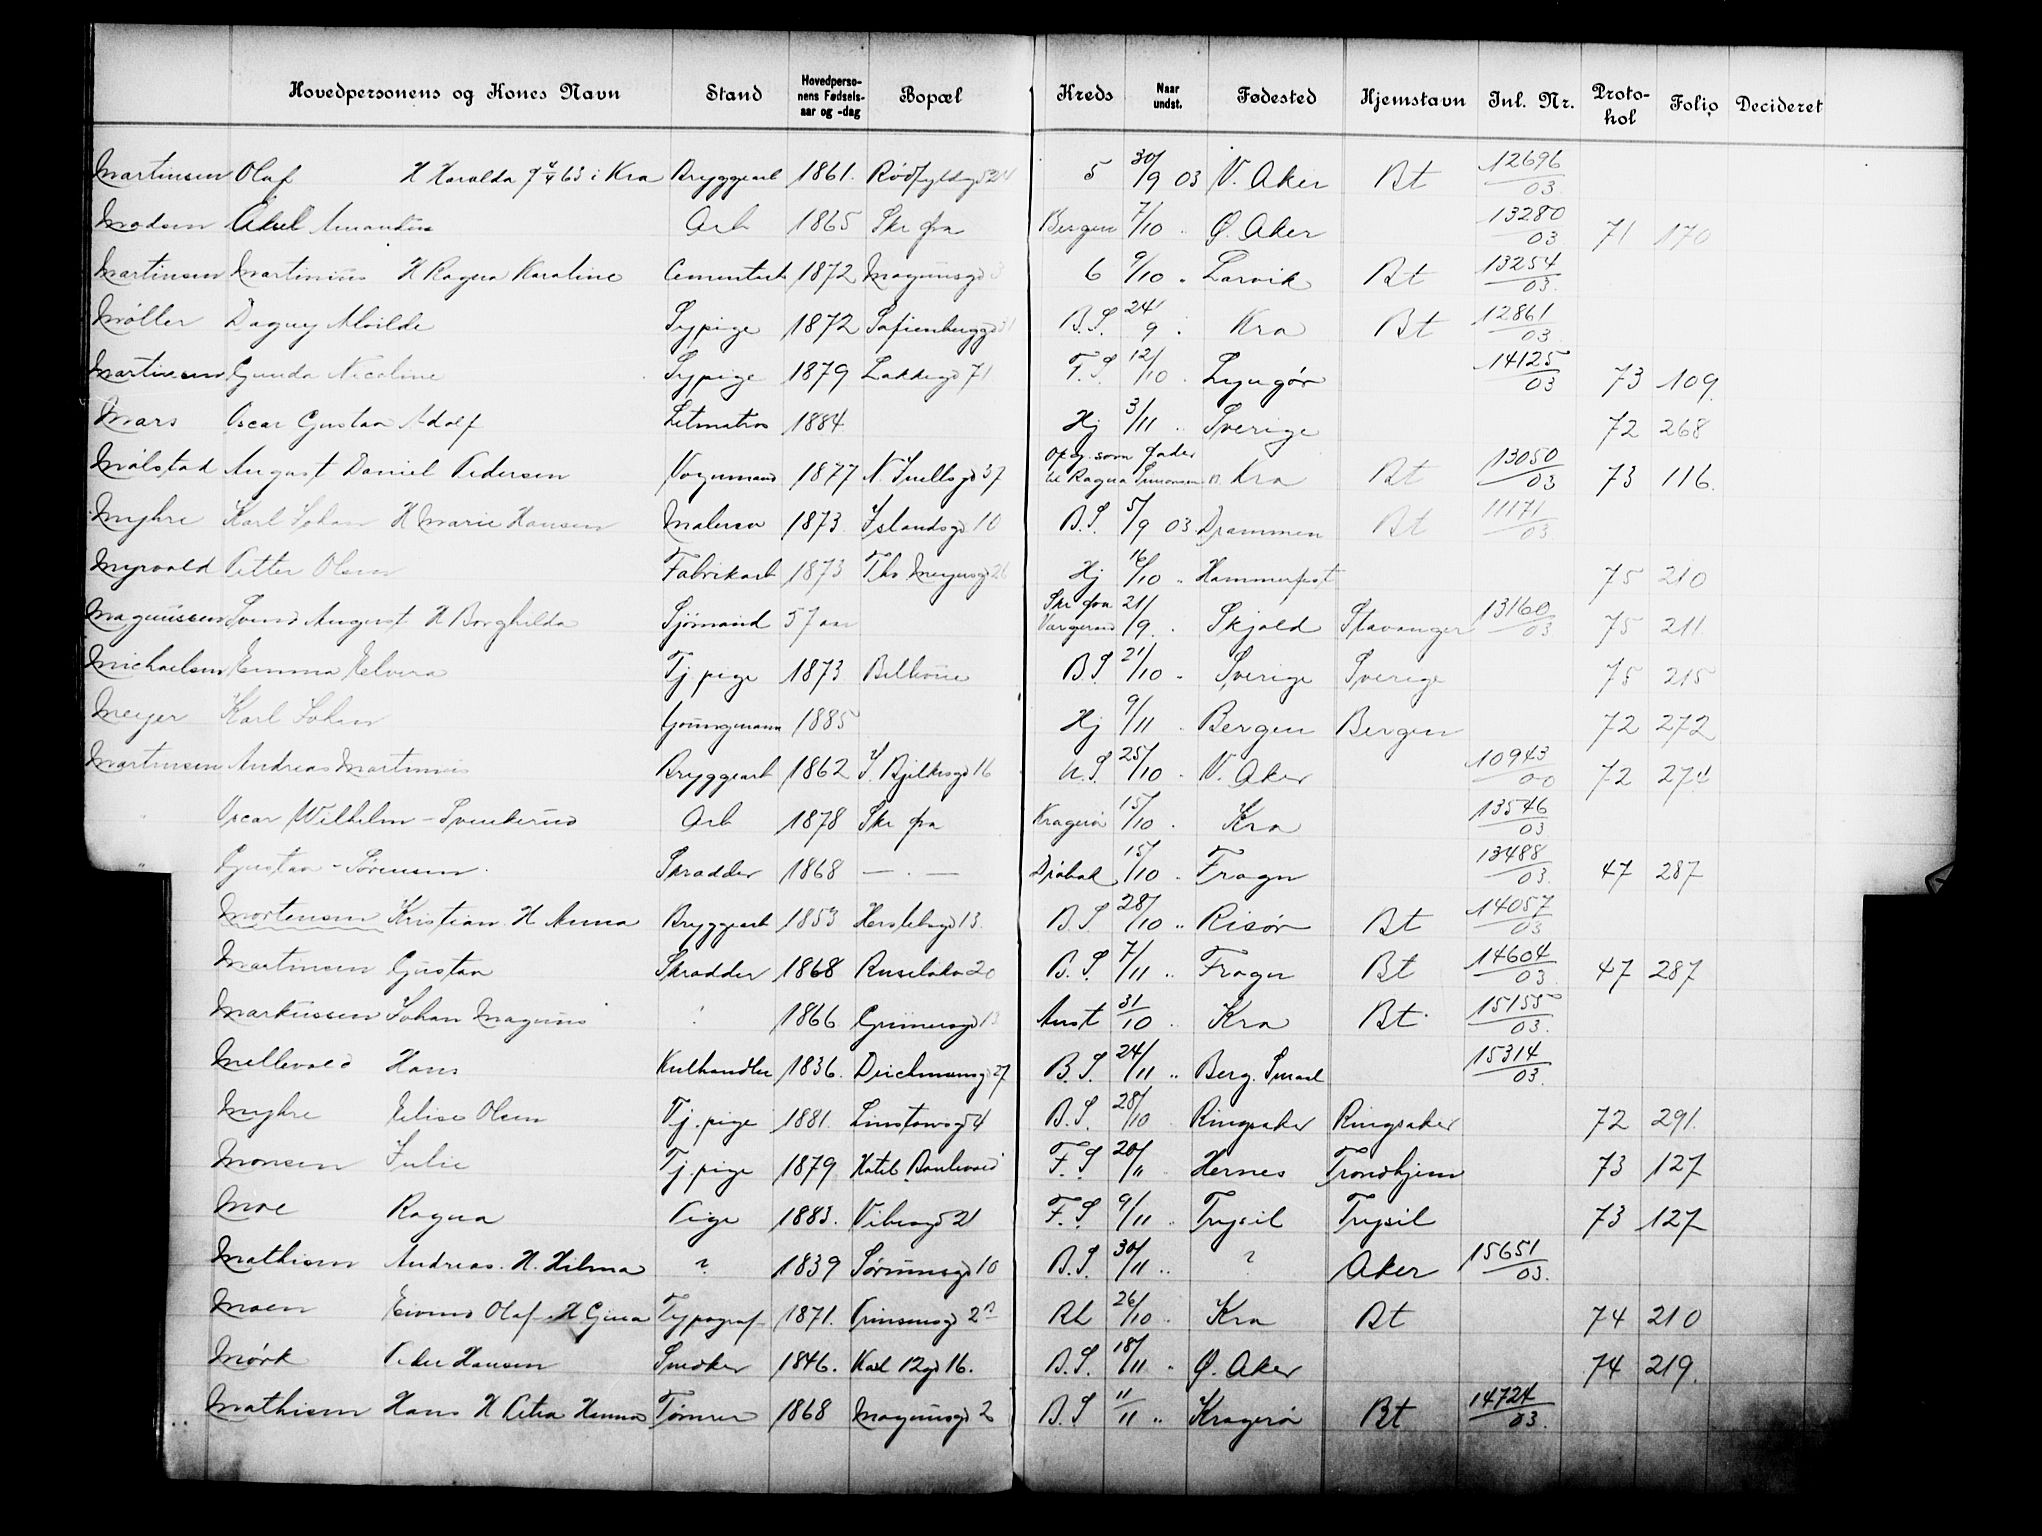 Hovedpersonens og Kones Navn Stand Hovedperso-nens Fødsels-aar og -dag Bopæl Kreds Naar undst. Fødested Hjemstavn Inl. Nr. Proto-kol Folio Decideret
Martinsen Olaf H Haralda 63 i Kra Bryggearb 1861. 5 30/9 03 V. Aker Bt 12696/03
Madsen Aksel Amandus Arb 1865 Skr fra Bergen 7/10 " Ø. Aker 13280/03 71 170
Martinsen Martinius H Ragna Karoline Cementarb 1872 Magnusgd 3 6 9/10 " Larvik Bt 13254/03
Møller Dagny Alvilde Sypige 1872 Sofienberggd 31 B.S. 24/9 " Kra Bt 12861/03
Martinsen Gunda Nicoline Sypige 1879 Lakkegd 71 F.S. 12/10 " Lyngør 14125/03 73 109
Mars Oscar Gustav Adolf Letmatros 1884 Hj 3/11 " Sverige 72 268
Målstad August Daniel Pedersen Vognmand 1877 N. Juellsgd 37 Opg. som fader til Ragna Simonsen Kra Bt 13050/03 73 116.
Myhre Karl Johan H Marie Hansen Malersv 1873 Islandsgd 10 B.S. 5/9 03 Drammen Bt 11171/03
Myrvold Petter Olsen Fabrikarb 1873 Ths Meyersgd 26 Hj 16/10 " Hammerfest 75 210
Magnussen Svend August H Borghilda Sjömand 57 aar Skr fra 21/9 " Skjold Stavanger 13160/03 75 211
Michaelsen Emma Elvera Tj. pige 1873 Bellevue B S 21/10 " Sverige Sverige 75 215
Meyer Karl Johan Youngmann 1885 Hj 9/11 " Bergen Bergen 72 272
Martinsen Andreas Martinius Bryggearb 1862 J. Bjelkesgd 16 U.S. 25/10 " V. Aker 10943/00 72 274
Oscar Wilhelm - Svenkerud Arb 1878 Skr fra Kragerø 15/10 " Kra 13546/03
" Gustav - Sørensen Skradder 1868 — " — Drøbak 15/10 " Frogn 13488/03 47 287
Mortensen Kristian H Anna Bryggearb 1853 Herslebsgd 13. B.S 28/10 " Risør Bt 14057/03
Martinsen Gustav Skradder 1868 Ruseløkv 20 B.S. 7/11 " Frogn Bt 14604/03 47 287
Markussen Johan Magnus ? 1866 Grünersgd 13 Anst 31/10 " Kra Bt 15155/03
Mellevold Hans Kulhandler 1836. Deichmansgd 27 B.S. 24/11 " Berg. Smaal 15314/03.
Myhre Elise Olsen Tj. pige 1881. Linstowsgd 4 B.S. 28/10 Ringsaker Ringsaker 72 291.
Monsen Julie Tj. pige 1879 Hotel Boulevard F.S 20/11 Hernes Trondhjem 73 127
Moe Ragna Pige 1883. Vibesgd 21 F.S 9/11 " Trysil Trysil 73 127
Mathisen Andreas. H. Hilma ? 1839 Sørumsgd 10 B.S. 30/11 " ? Aker 15651/03.
Moen Eivind Olaf H Gina Typograf 1871. Prinsensgd 2 B Rh 26/10 " Kra Bt 74 210
Mørk Peder Hansen Snedker 1846. Karl 12gd 16. B.S. 18/11 " Ø. Aker 74 219.
Mathisen Hans H Petra Hanna Tømrer 1868 Magnusgd 2 B.S 11/11 " Kragerø Bt 14724/03.